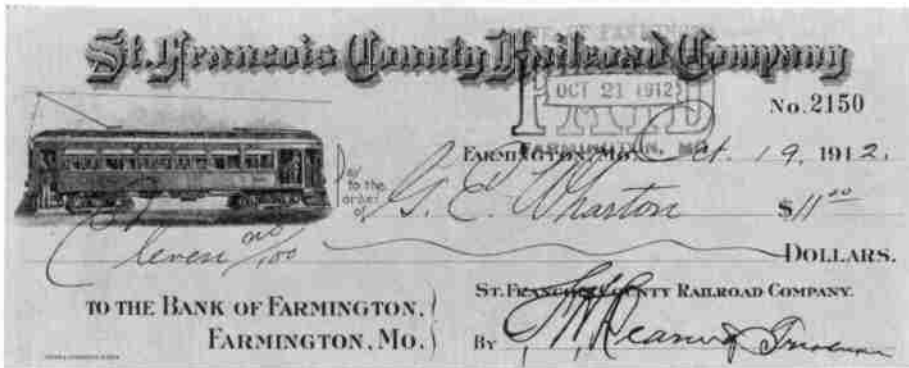 BANK OF FARMINGTON
St. Francois County Railroad Company
PAID
OCT 21 1912
No. 2150
FARMINGTON, MO.
FARMINGTON, MO. Oct. 19, 1912.
Pay to the order of G. E. Wharton $11 00
Eleven no/100 DOLLARS.
TO THE BANK OF FARMINGTON,
FARMINGTON, MO.
ST. FRANCOIS COUNTY RAILROAD COMPANY.
By Treasurer